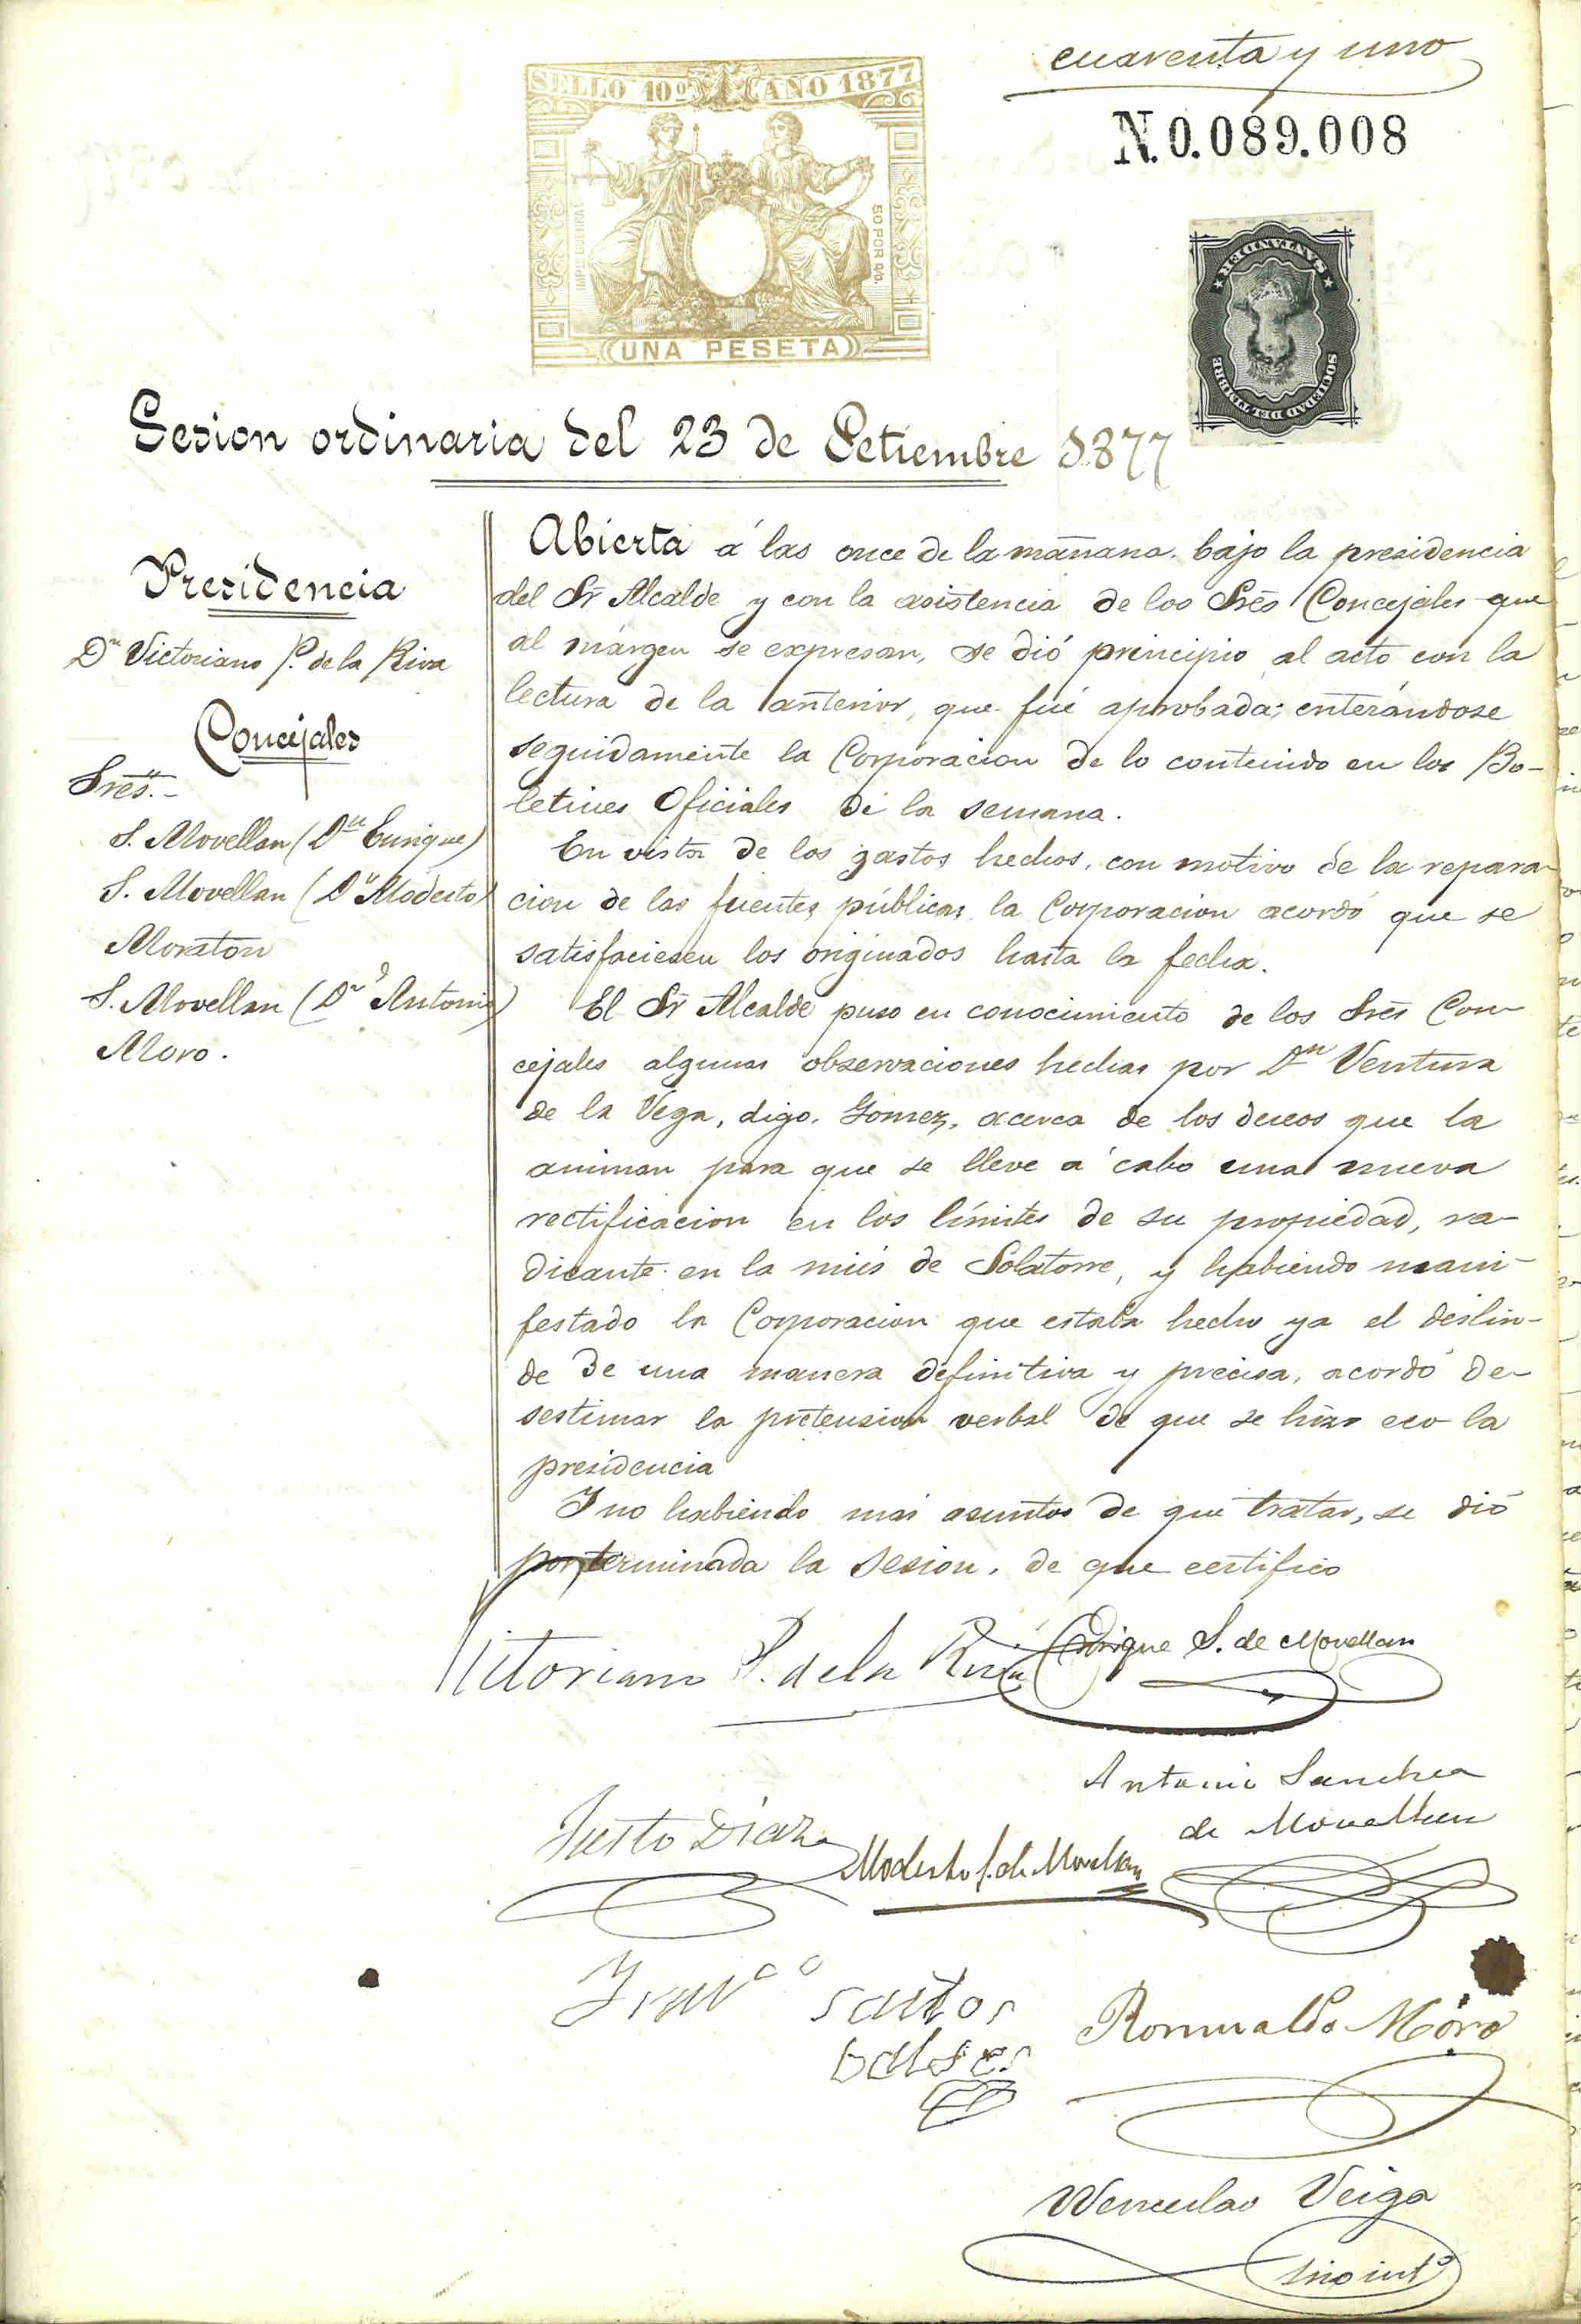 cuarenta y uno
SELLO 10º AÑO 1877
N.0.089.008
IMPTO GUERRA
50 POR 0/0.
UNA PESETA
SANTANDER
SOCIEDAD DEL TIMBRE
Sesion ordinaria del 23 de Setiembre 1877
Presidencia
Dn Victoriano P. de la Riva
Concejales
Sres.-
S. Movellan (Dn Enrique)
S. Movellan (Dn Modesto)
Moraton
S. Movellan (Dn Antonio)
Moro.
Abierta á las once de la mañana, bajo la presidencia
del Sr Alcalde y con la asistencia de los Sres Concejales que
al márgen se expresan, se dió principio al acto con la
lectura de la anterior, que fué aprobada; enterándose
seguidamente la Corporacion de lo contenido en los Bo-
letines Oficiales de la semana.
En vista de los gastos hechos, con motivo de la repara-
cion de las fuentes públicas, la Corporacion acordó que se
satisfaciesen los originados hasta la fecha.
El Sr Alcalde puso en conocimiento de los Sres Con-
cejales algunas observaciones hechas por Dn Ventura
de la Vega, digo, Gomez, acerca de los deseos que la
animan para que se lleve á cabo una nueva
rectificacion en los límites de su propiedad, ra-
dicante en la miés de Solatorre, y habiendo mani-
festado la Corporacion que estaba hecho ya el deslin-
de de una manera definitiva y precisa, acordó de-
sestimar la pretension verbal de que se hizo eco la
presidencia
Y no habiendo mas asuntos de que tratar, se dió
por terminada la sesion, de que certifico
Vitoriano P. de la Riva
Enrique S. de Movellan
Antonio Sanchez
de Movellan
Justo Diaz
Modesto S. de Movellan
Franco Santos
Romualdo Moro
Wenceslao Veiga
Srio intº